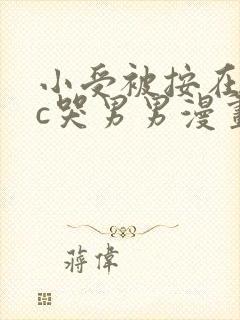 小受被按在
c哭男男漫畫
蔣偉